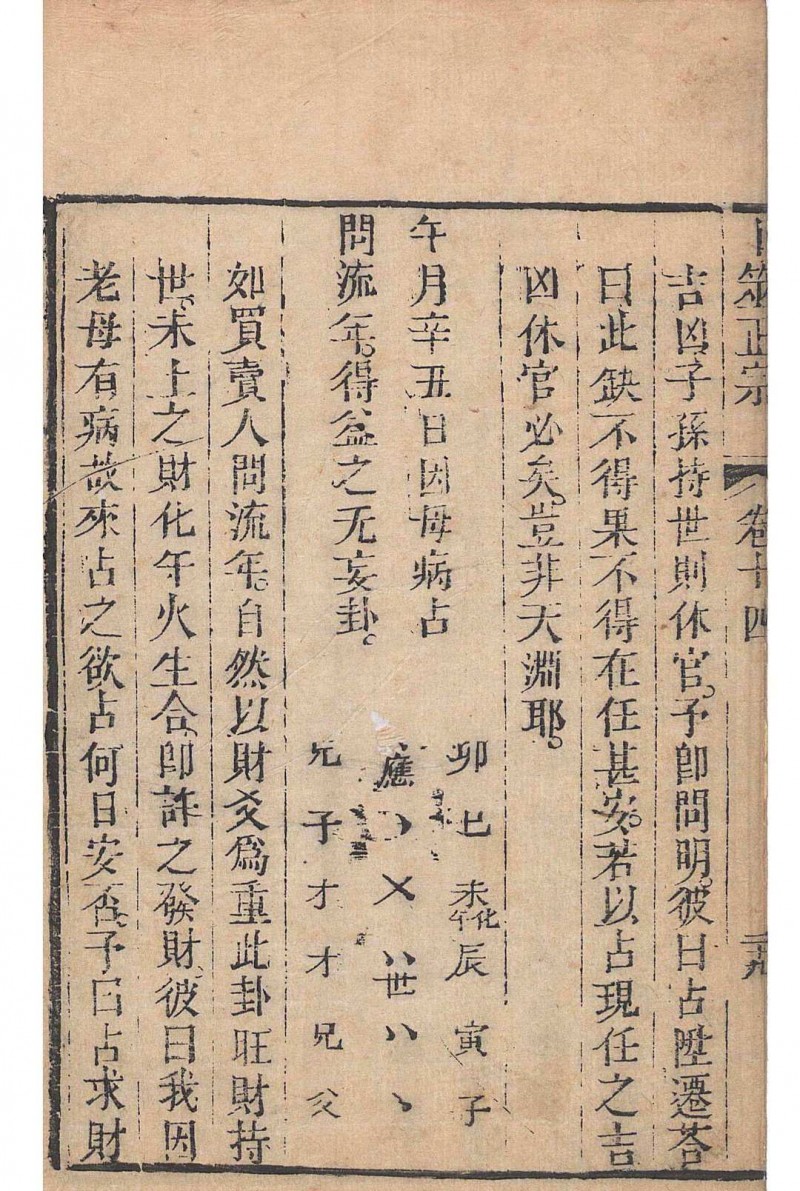 卜筮正宗 卷十四 二十九
吉凶子孫持世則休官。予卽問明。彼曰占陞遷荅
曰此缺不得果不得在任甚安。若以占現任之吉
凶休官必矣。豈非天淵耶。
午月辛丑日因母病占
問流年。得益之无妄卦。
卯巳未化午辰寅子
應、乂 〃世〃、
兄子才才兄父
如買賣人問流年。自然以財爻爲重此卦旺財持
世。未土之財化午火生合。卽許之發財。彼曰我因
老母有病故來占之欲占何日安否。予曰占求財